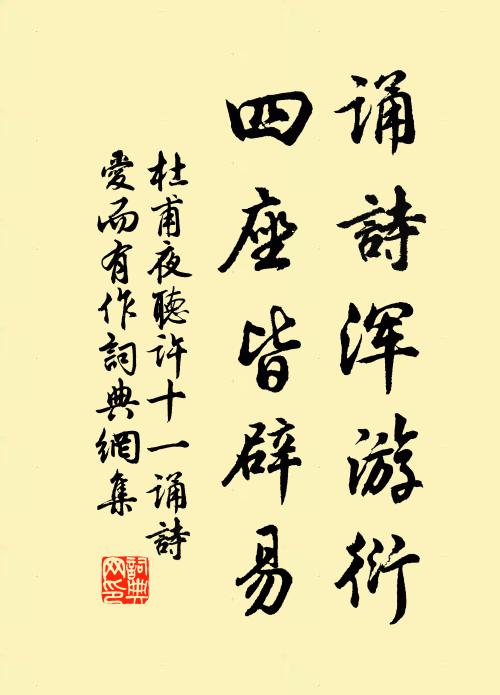 诵詩浑游衍
四座皆辟易
杜甫夜聽许十一诵詩
愛而有作詞典網集
詞典网印